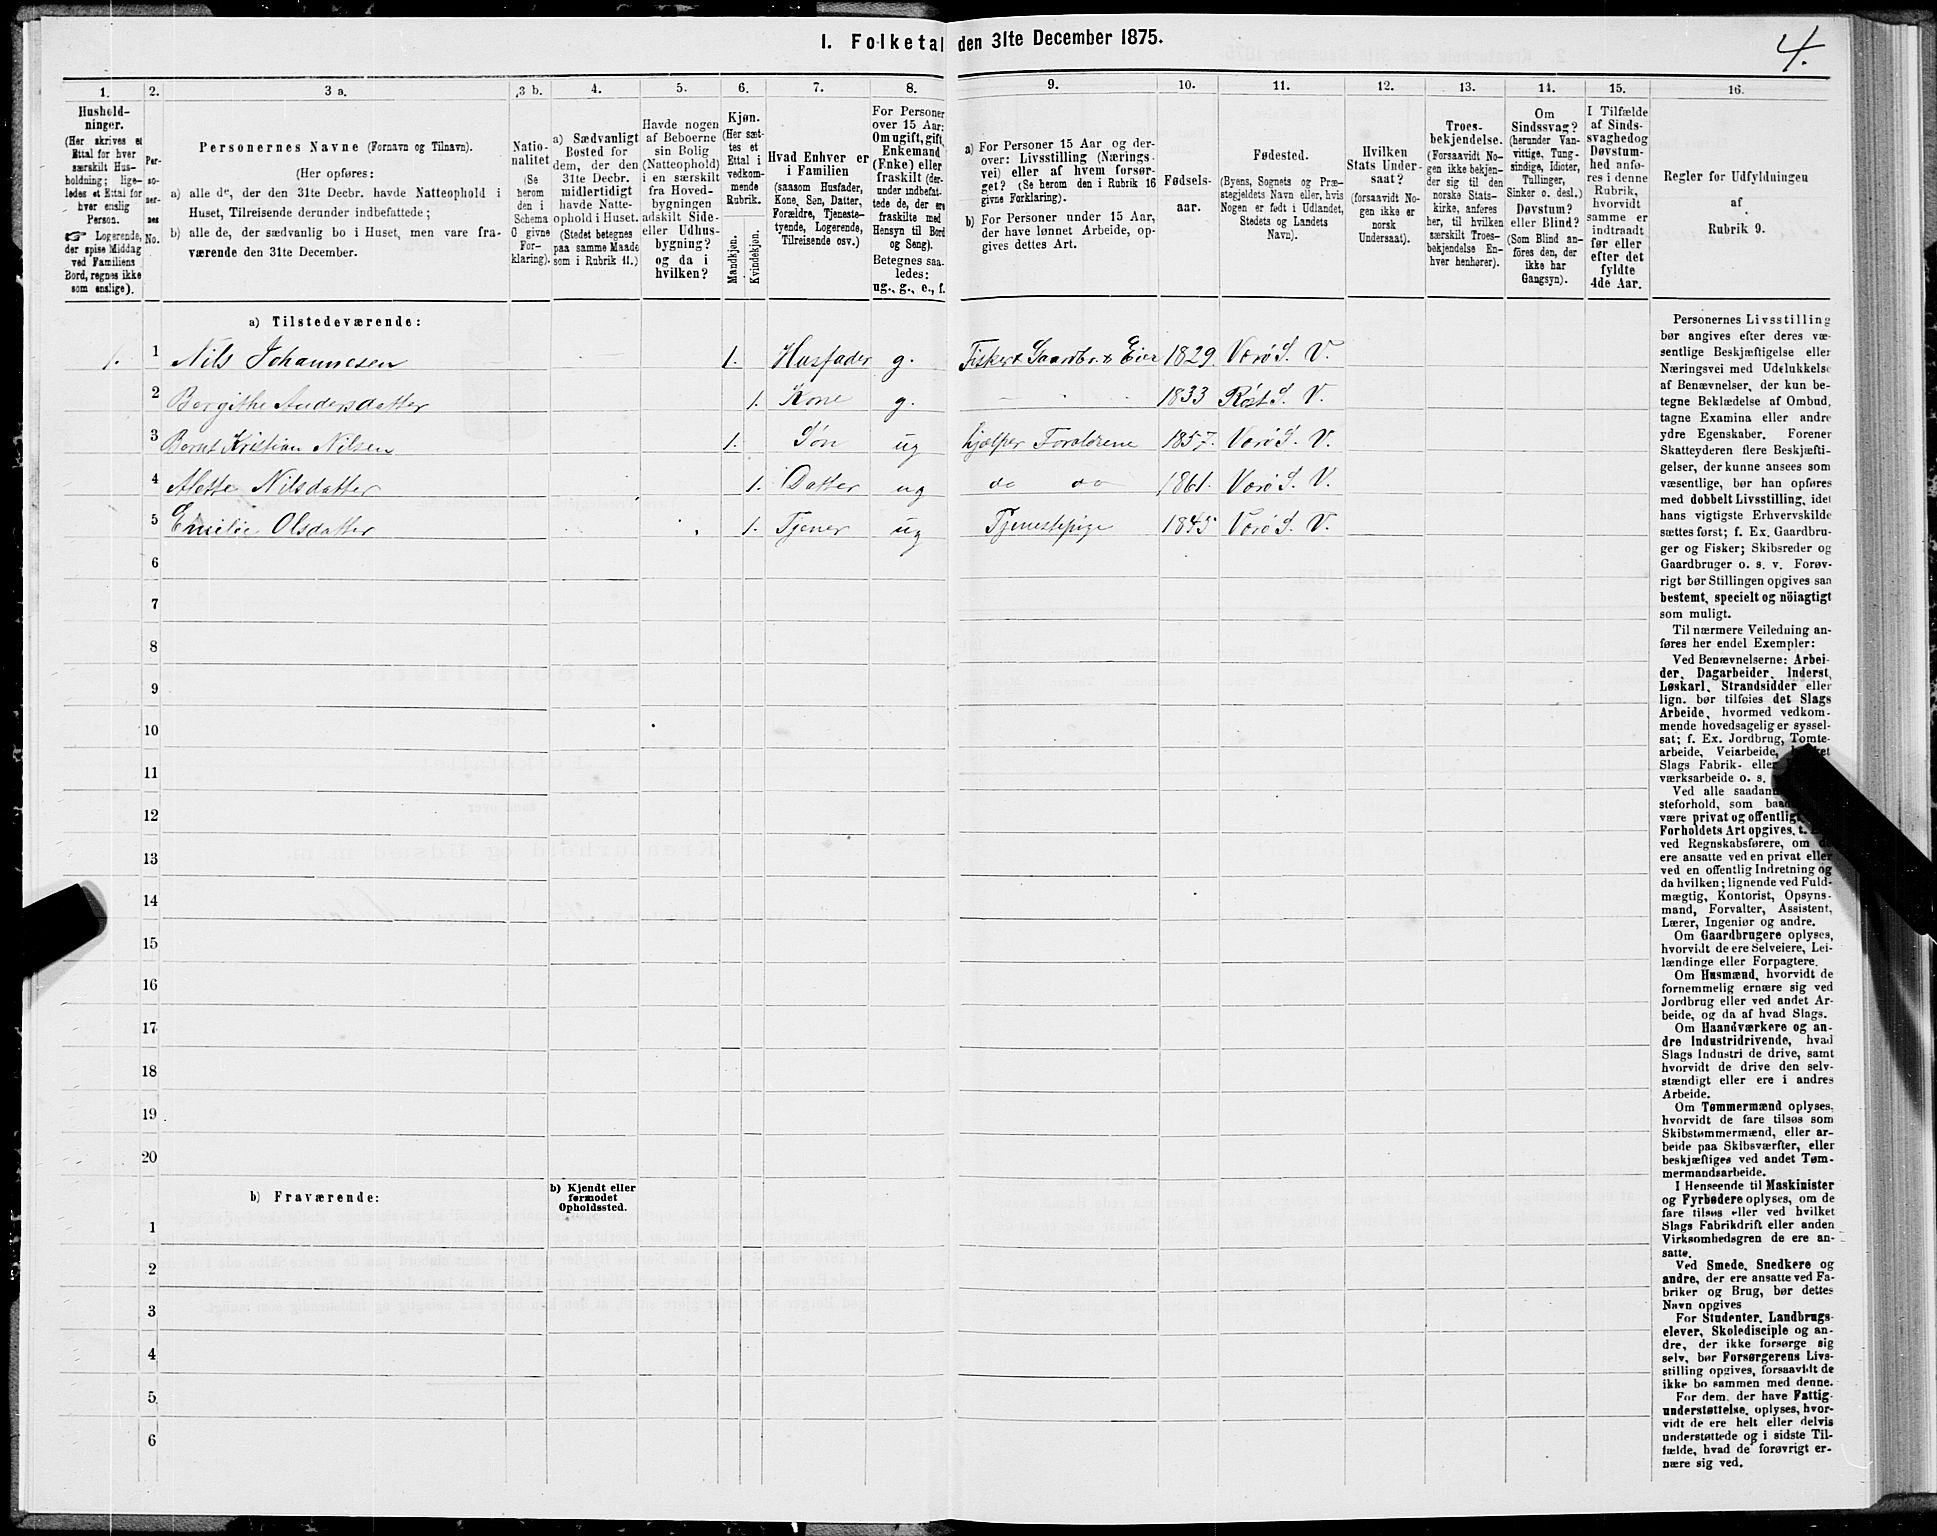 4.
I. Folketal den 31te December 1875.
1. 2. 3 a. 3 b. 4. 5. 6. 7. 8. 9. 10. 11. 12. 13. 14. 15. 16.
Hushold-
ninger.
(Her skrives et
Ettal for hver
særskilt Hus-
holdning; lige-
ledes et Ettal for
hver enslig
Person.
☞ Logerende,
der spise Middag
ved Familiens
Bord, regnes ikke
som enslige).
Per-
so-
ner-
nes
No.
Personernes Navne (Fornavn og Tilnavn).
(Her opføres:
a) alle de, der den 31te Decbr. havde Natteophold i
Huset, Tilreisende derunder indbefattede;
b) alle de, der sædvanlig bo i Huset, men vare fra-
værende den 31te December.
Natio-
nalitet
(Se
herom
den i
Schema
O givne
For-
klaring).
a) Sædvanligt
Bosted for
dem, der den
31te Decbr.
midlertidigt
havde Natte-
ophold i Huset.
(Stedet betegnes
paa samme Maade
som i Rubrik 11.)
Havde nogen
af Beboerne
sin Bolig
(Natteophold)
i en særskilt
fra Hoved-
bygningen
adskilt Side-
eller Udhus-
bygning?
og da i
hvilken?
Kjøn.
(Her sæt-
tes et
Ettal i
vedkom-
mende
Rubrik.
Mandkjøn.
Kvindekjøn.
Hvad Enhver er
i Familien
(saasom Husfader,
Kone, Søn, Datter,
Forældre, Tjeneste-
tyende, Logerende,
Tilreisende osv.)
For Personer
over 15 Aar:
Om ugift, gift,
Enkemand
(Enke) eller
fraskilt (der-
under indbefat-
tede de, der ere
fraskilte med
Hensyn til Bord
og Seng).
Betegnes saa-
ledes:
ug., g., e., f.
a) For Personer 15 Aar og der-
over: Livsstilling (Nærings-
vei) eller af hvem forsør-
get? (Se herom den i Rubrik 16
givne Forklaring).
b) For Personer under 15 Aar,
der have lønnet Arbeide, op-
gives dettes Art.
Fødsels-
aar.
Fødested.
(Byens, Sognets og Præ-
stegjeldets Navn eller, hvis
Nogen er født i Udlandet,
Stedets og Landets
Navn).
Hvilken
Stats Under-
saat?
(forsaavidt No-
gen ikke er
norsk
Undersaat).
Troes-
bekjendelse.
(Forsaavidt No-
gen ikke bekjen-
der sig til den
norske Stats-
kirke, anføres
her, til hvilken
særskilt Troes-
bekjendelse En-
hver henhører).
Om
Sindssvag?
(herunder Van-
vittige, Tung-
sindige, Idioter,
Tullinger,
Sinker o. desl.)
Døvstum?
eller Blind?
(Som Blind an-
føres den, der
ikke har
Gangsyn).
I Tilfælde
af Sinds-
svaghed og
Døvstum-
hed anfø-
res i denne
Rubrik,
hvorvidt
samme er
indtraadt
før eller
efter det
fyldte
4de Aar.
Regler for Udfyldningen
af
Rubrik 9.
a) Tilstedeværende:
1. 1 Nils Johannesen 1. Husfader g. Fisker & Gaardbr. & Eier 1829. Værø S. V.
2 Bergithe Andersdatter 1. Kone g. 1833 Røst S. V.
3 Bernt Kristian Nilsen 1. Søn ug hjælper Forældrene 1857. Værø S. V.
4 Mette Nilsdatter 1. Datter ug do do 1861. Værø S. V.
5 Emilie Olsdatter 1. Tjener ug Tjenestepige 1845 Værø S. V.
6
7
8
9
10
11
12
13
14
15
16
17
18
19
20
b) Fraværende:
b) Kjendt eller
formodet
Opholdssted.
1
2
3
4
5
6
Personernes Livsstilling
bør angives efter deres væ-
sentlige Beskjæftigelse eller
Næringsvei med Udelukkelse
af Benævnelser, der kun be-
tegne Beklædelse af Ombud,
tagne Examina eller andre
ydre Egenskaber. Forener
Skatteyderen flere Beskjæfti-
gelser, der kunne ansees som
væsentlige, bør han opføres
med dobbelt Livsstilling, idet
hans vigtigste Erhvervskilde
sættes først; f. Ex. Gaardbru-
ger og Fisker; Skibsreder og
Gaardbruger o. s. v. Forøv-
rigt bør Stillingen opgives saa
bestemt, specielt og nöiagtigt
som muligt.
Til nærmere Veiledning an-
føres her endel Exempler:
Ved Benævnelserne: Arbei-
der, Dagarbeider, Inderst,
Løskarl, Strandsidder eller
lign. bør tilføies det Slags
Arbeide, hvormed vedkom-
mende hovedsagelig er syssel-
sat; f. Ex. Jordbrug, Tomte-
arbeide, Veiarbeide,
Slags Fabrik- eller
værksarbeide o. s.
Ved alle saadan
steforhold, som
være privat og offentligt
Forholdets Art opgives, t.
ved Regnskabsførere, om
ere ansatte ved en privat eller
ved en offentlig Indretning og
da hvilken; lignende ved Fuld-
mægtig, Kontorist, Opsyns-
mand, Forvalter, Assistent,
Lærer, Ingeniør og andre.
Om Gaardbrugere oplyses,
hvorvidt de ere Selveiere, Lei-
lændinge eller Forpagtere.
Om Husmænd, hvorvidt de
fornemmelig ernære sig ved
Jordbrug eller ved andet Ar-
beide, og da af hvad Slags.
Om Haandværkere og an-
dre Industridrivende, hvad
Slags Industri de drive, samt
hvorvidt de drive den selv-
stændigt eller ere i andres
Arbeide.
Om Tømmermænd oplyses,
hvorvidt de fare tilsøs som
Skibstømmermænd, eller ar-
beide paa Skibsværfter, eller
beskjæftiges ved andet Tøm-
mermandsarbeide.
I Henseende til Maskinister
og Fyrbødere oplyses, om de
fare tilsøs eller ved hvilket
Slags Fabrikdrift eller anden
Virksomhedsgren de ere an-
satte.
Ved Smede, Snedkere og
andre, der ere ansatte ved Fa-
briker og Brug, bør dettes
Navn opgives
For Studenter, Landbrugs-
elever, Skoledisciple og an-
dre, der ikke forsørge sig
selv, bør Forsørgerens Livs-
stilling opgives, forsaavidt de
ikke bo sammen med denne.
For dem, der have Fattig-
understøttelse, oplyses, hvor-
vidt de ere helt eller delvis
understøttede og i sidste Til-
fælde, hvad de forøvrigt er-
nære sig ved.